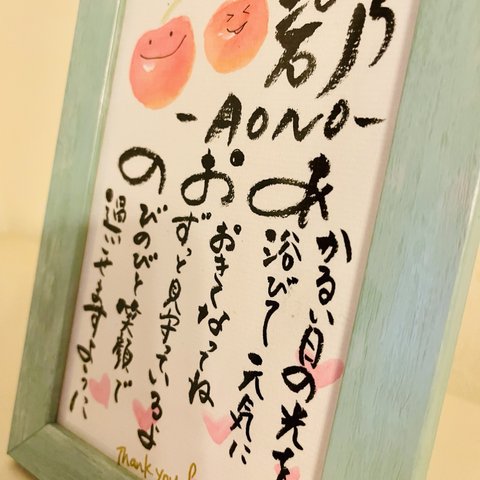 碧乃
-AONO-
あかるい日の光を
浴びて元気に
おおきくなってね
ずっと見守っているよ
のびのびと笑顔で
過ごせますように
Thank you